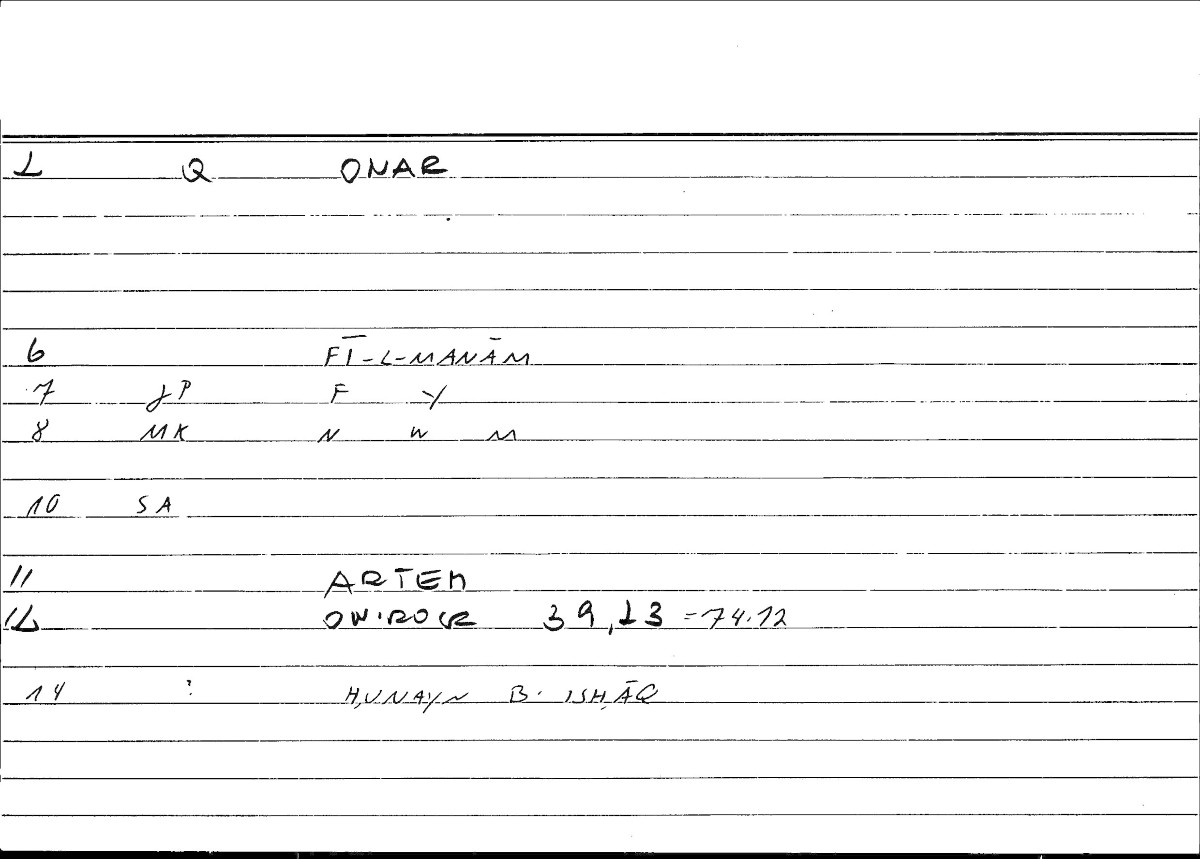 2 Q ONAR
6 FĪ-L-MANĀM
7 JP F Y
8 MK N W M
10 SA
11 ARTEM
12 ONIROCR 39,23 = 74.12
14 : ḤUNAYN B. ISḤĀQ